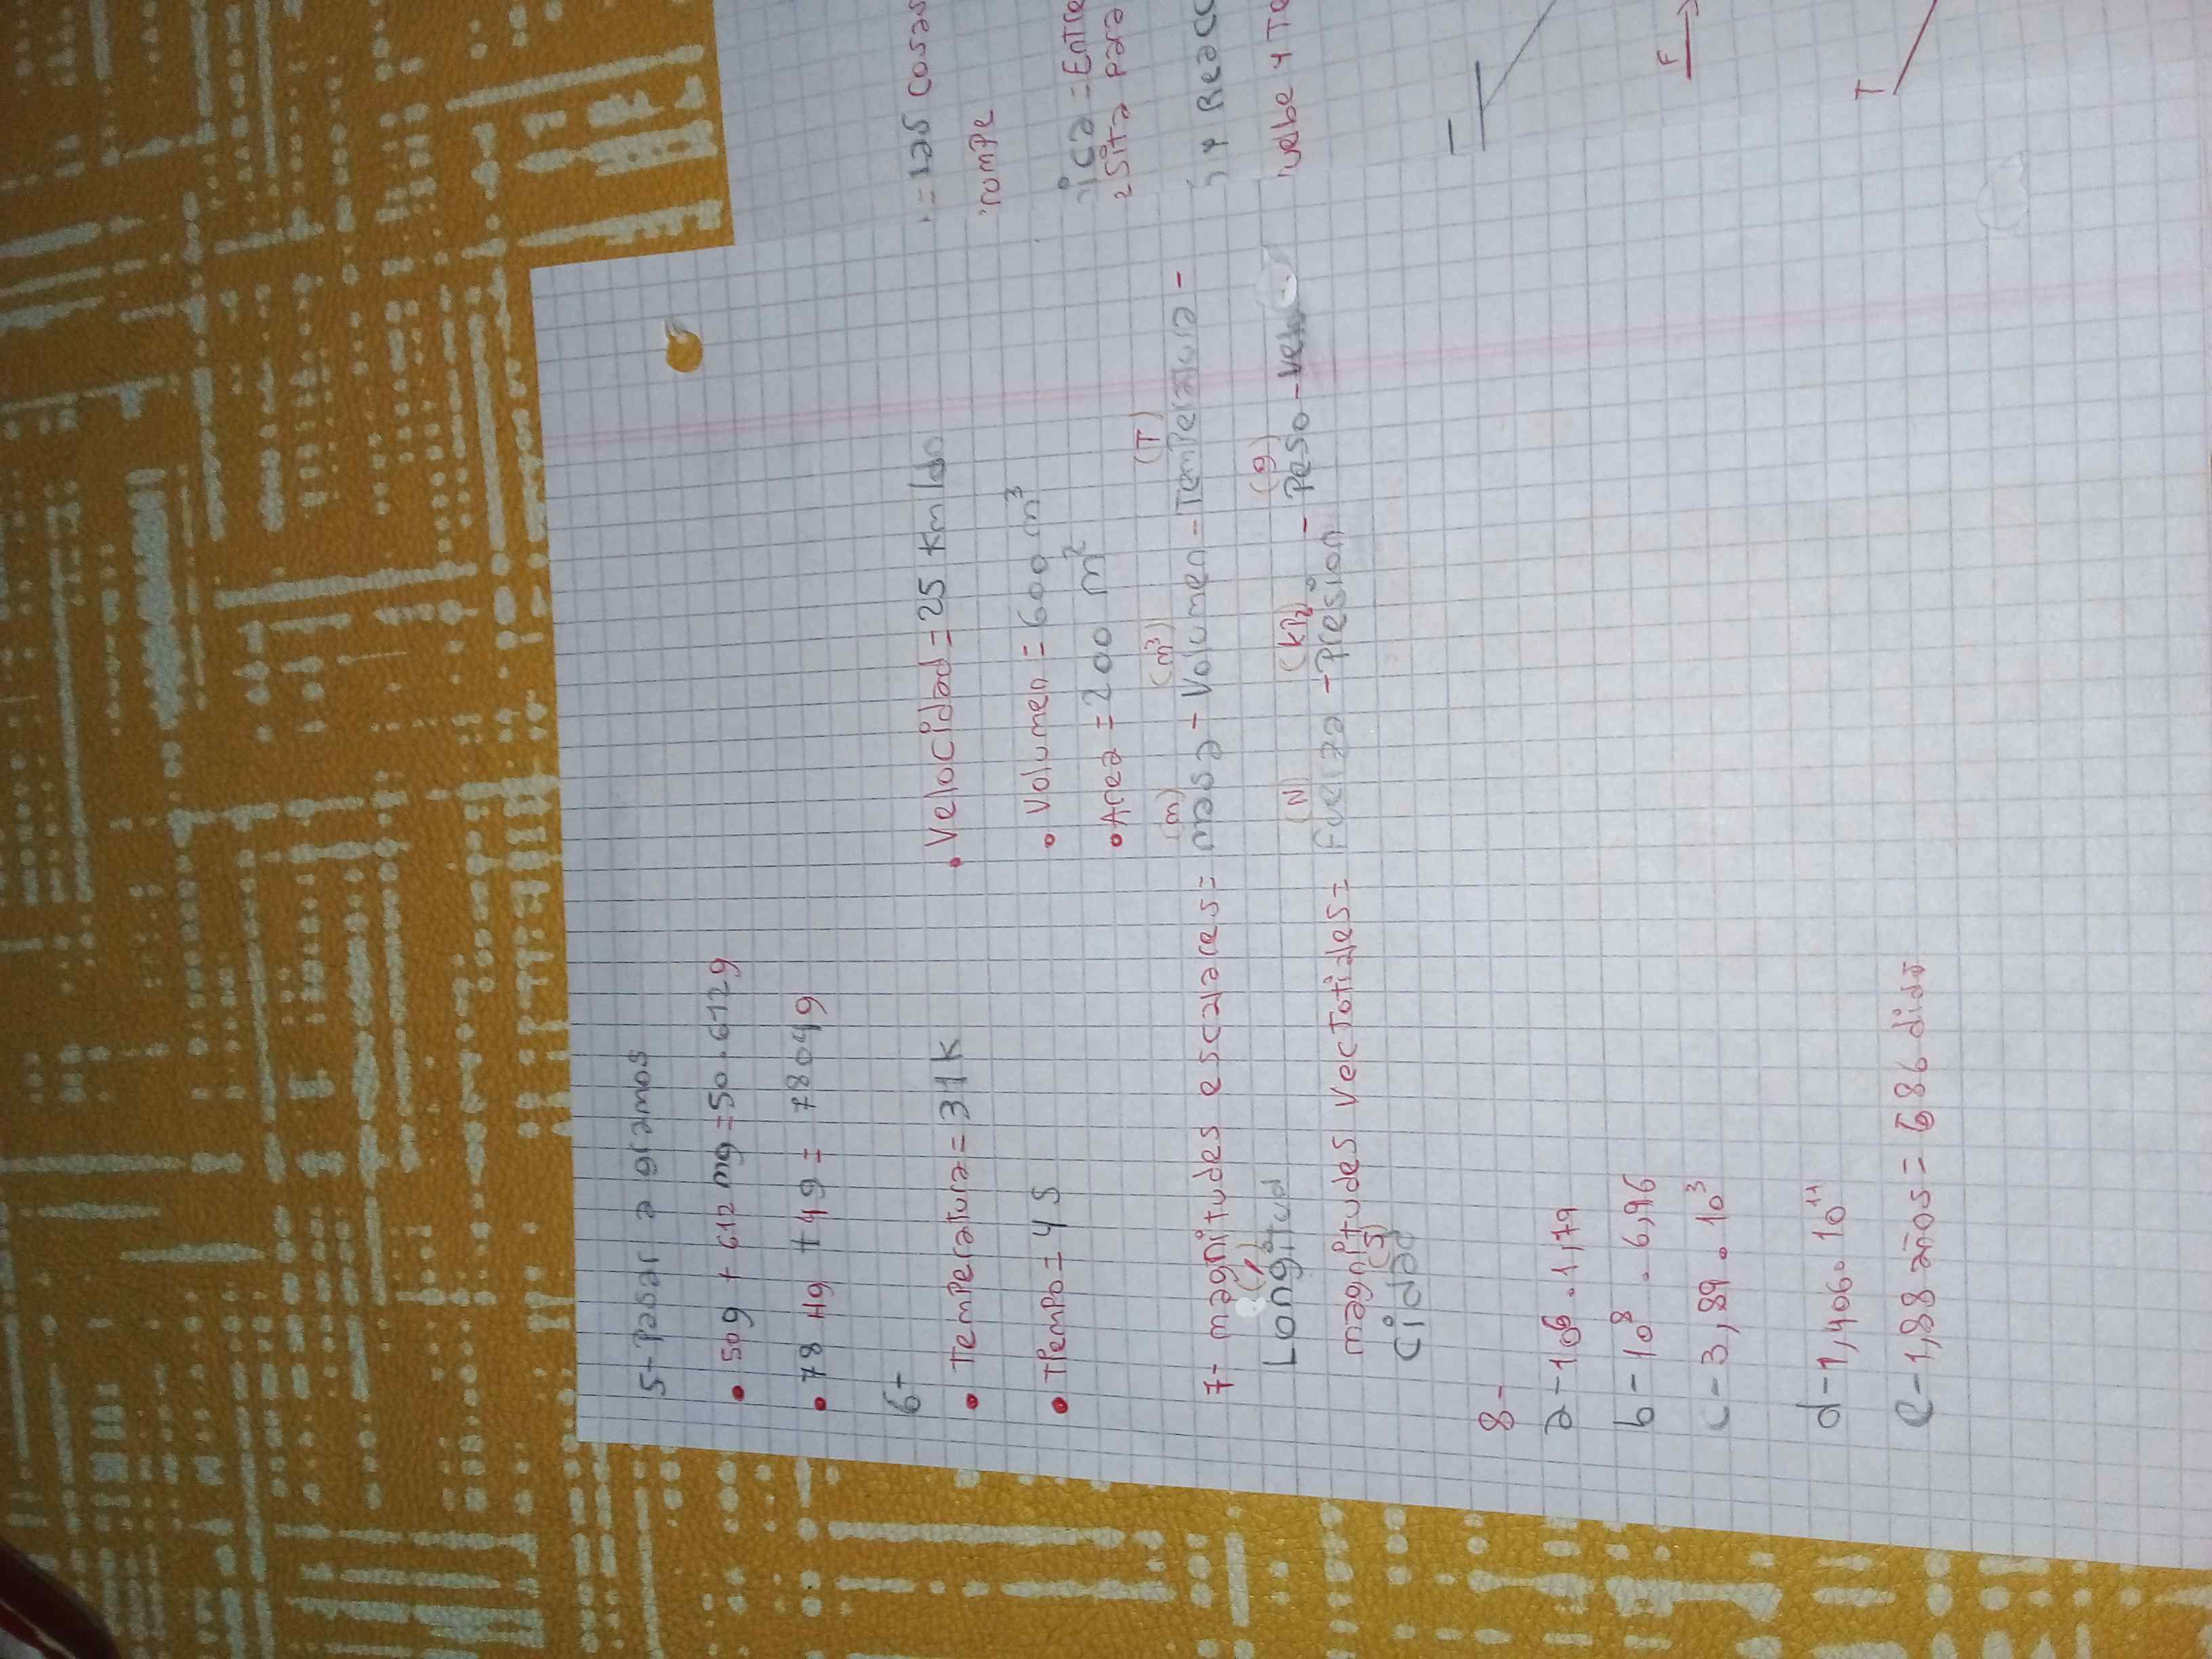 5- Pasar a gramos
• 50g + 612 mg = 50.612g
• 78 Hg + 4g = 7804g
6-
• Temperatura = 31K
• Velocidad = 25 Km/h
• Tiempo = 4 S
• Volumen = 600 m³
• Area = 200 m²
(m) (m³) (T)
7- magnitudes escalares = masa - Volumen - Temperatura -
(L)
Longitud
(N) (kP₂) (g)
magnitudes Vectoriales = Fuerza - Presion - Peso - Velo
(S)
Cidad
8-
a - 10⁶ . 1,79
b - 10⁸ . 6,96
c - 3,89 . 10³
d - 1,406 . 10¹¹
e - 1,88 años = 686 dias
= las cosas
rompe
ica = Entre
para
y Reacc
F
T